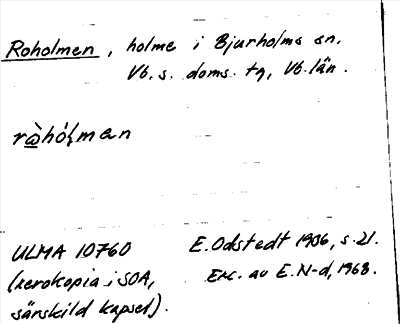 Roholmen, holme i Bjurholms sn.
Vb. s. doms. tg, Vb. län.
ULMA 10760
(xerokopia i SOA,
särskild kapsel).
E. Odstedt 1936, s. 21.
Exc. av E. N-d, 1968.